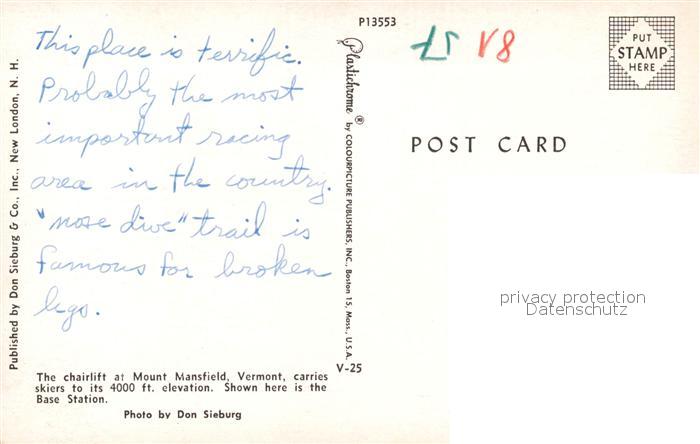 P13553
LT V8
PUT
STAMP
HERE
POST CARD
This place is terrific.
Probably the most
important racing
area in the country.
"nose dive" trail is
famous for broken
legs.
The chairlift at Mount Mansfield, Vermont, carries
skiers to its 4000 ft. elevation. Shown here is the
Base Station.
Photo by Don Sieburg
Published by Don Sieburg & Co., Inc., New London, N. H.
Plastichrome ® by COLOURPICTURE PUBLISHERS, INC., Boston 15, Mass., U.S.A.
V-25
privacy protection
Datenschutz